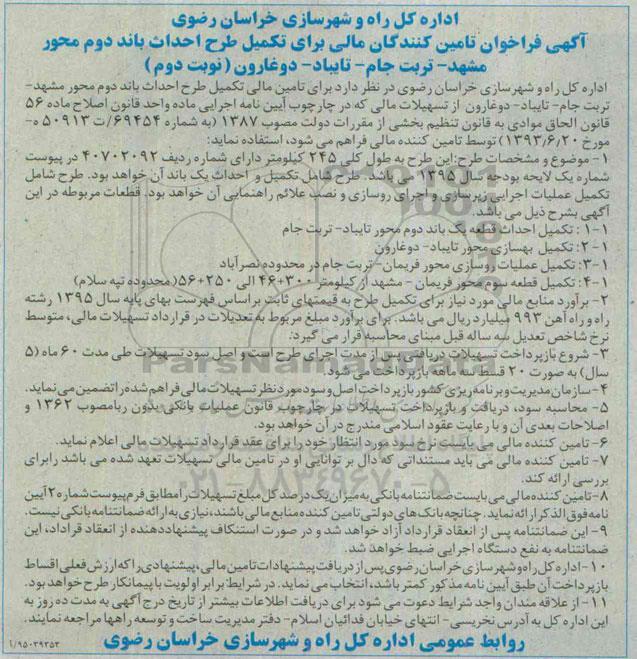 اداره کل راه و شهرسازی خراسان رضوی
آگهی فراخوان تامین کنندگان مالی برای تکمیل طرح احداث باند دوم محور
مشهد- تربت جام- تایباد- دوغارون ( نوبت دوم )
اداره کل راه و شهرسازی خراسان رضوی در نظر دارد برای تامین مالی تکمیل طرح احداث باند دوم محور مشهد-
تربت جام- تایباد- دوغارون از تسهیلات مالی که در چارچوب آیین نامه اجرایی ماده واحد قانون اصلاح ماده ۵۶
قانون الحاق موادی به قانون تنظیم بخشی از مقررات دولت مصوب ۱۳۸۷ (به شماره ۶۹۴۵۴/ت ۵۰۹۱۳ ه-
مورخ ۱۳۹۳/۶/۲۰) توسط تامین کننده مالی فراهم می شود، استفاده نماید:
۱- موضوع و مشخصات طرح: این طرح به طول کلی ۲۴۵ کیلومتر دارای شماره ردیف ۴۰۷۰۲۰۹۲ در پیوست
شماره یک لایحه بودجه سال ۱۳۹۵ می باشد. طرح شامل تکمیل و احداث یک باند آن خواهد بود. طرح شامل
تکمیل عملیات اجرایی زیرسازی و اجرای روسازی و نصب علائم راهنمایی آن خواهد بود. قطعات مربوطه در این
آگهی بشرح ذیل می باشد.
۱-۱: تکمیل احداث قطعه یک باند دوم محور تایباد- تربت جام
۲-۱: تکمیل بهسازی محور تایباد- دوغارون
۳-۱: تکمیل عملیات روسازی محور فریمان- تربت جام در محدوده نصرآباد
۴-۱: تکمیل قطعه سوم محور فریمان - مشهد از کیلومتر ۳۰۰+۴۶ الی ۲۵۰+۵۶ (محدوده تپه سلام)
۲- برآورد منابع مالی مورد نیاز برای تکمیل طرح به قیمتهای ثابت براساس فهرست بهای پایه سال ۱۳۹۵ رشته
راه و راه آهن ۹۹۳ میلیارد ریال می باشد. برای برآورد مبلغ مربوط به تعدیلات در قرارداد تسهیلات مالی، متوسط
نرخ شاخص تعدیل سه ساله قبل مبنای محاسبه قرار می گیرد:
۳- شروع بازپرداخت تسهیلات دریافتی پس از مدت اجرای طرح است و اصل سود تسهیلات طی مدت ۶۰ ماه (۵
سال) به صورت ۲۰ قسط سه ماهه بازپرداخت می شود.
۴- سازمان مدیریت و برنامه ریزی کشور بازپرداخت اصل و سود مورد نظر تسهیلات مالی فراهم شده را تضمین می نماید.
۵- محاسبه سود، دریافت و بازپرداخت تسهیلات در چارچوب قانون عملیات بانکی بدون ربا مصوب ۱۳۶۲ و
اصلاحات بعدی آن و با رعایت عقود اسلامی مندرج در آن خواهد بود.
۶- تامین کننده مالی می بایست نرخ سود مورد انتظار خود را برای عقد قرارداد تسهیلات مالی اعلام نماید.
۷- تامین کننده مالی می باید مستنداتی که دال بر توانایی او در تامین مالی تسهیلات تعهد شده می باشد را برای
بررسی ارائه کند.
۸- تامین کننده مالی می بایست ضمانتنامه بانکی به میزان یک درصد کل مبلغ تسهیلات را مطابق فرم پیوست شماره ۲ آیین
نامه فوق الذکر ارائه نماید. چنانچه بانک های دولتی تامین کننده منابع مالی باشند، نیازی به ارائه ضمانتنامه بانکی نیست.
۹- این ضمانتنامه پس از انعقاد قرارداد آزاد خواهد شد و در صورت استنکاف پیشنهاد دهنده از انعقاد قرارداد، این
ضمانتنامه به نفع دستگاه اجرایی ضبط خواهد شد.
۱۰- اداره کل راه و شهرسازی خراسان رضوی پس از دریافت پیشنهادات تامین مالی، پیشنهادی را که ارزش فعلی اقساط
بازپرداخت آن طبق آیین نامه مذکور کمتر باشد، انتخاب می نماید. در شرایط برابر اولویت با پیمانکار طرح خواهد بود.
۱۱- از علاقه مندان واجد شرایط دعوت می شود برای دریافت اطلاعات بیشتر از تاریخ درج آگهی به مدت ده روز به
این اداره کل به آدرس نخریسی- انتهای خیابان فدائیان اسلام- دفتر مدیریت ساخت و توسعه راهها مراجعه نمایند.
روابط عمومی اداره کل راه و شهرسازی خراسان رضوی
۱/۹۵۰۳۹۳۵۳
ParsNamad
۰۲۱-۸۸۳۴۹۶۷۰-۵